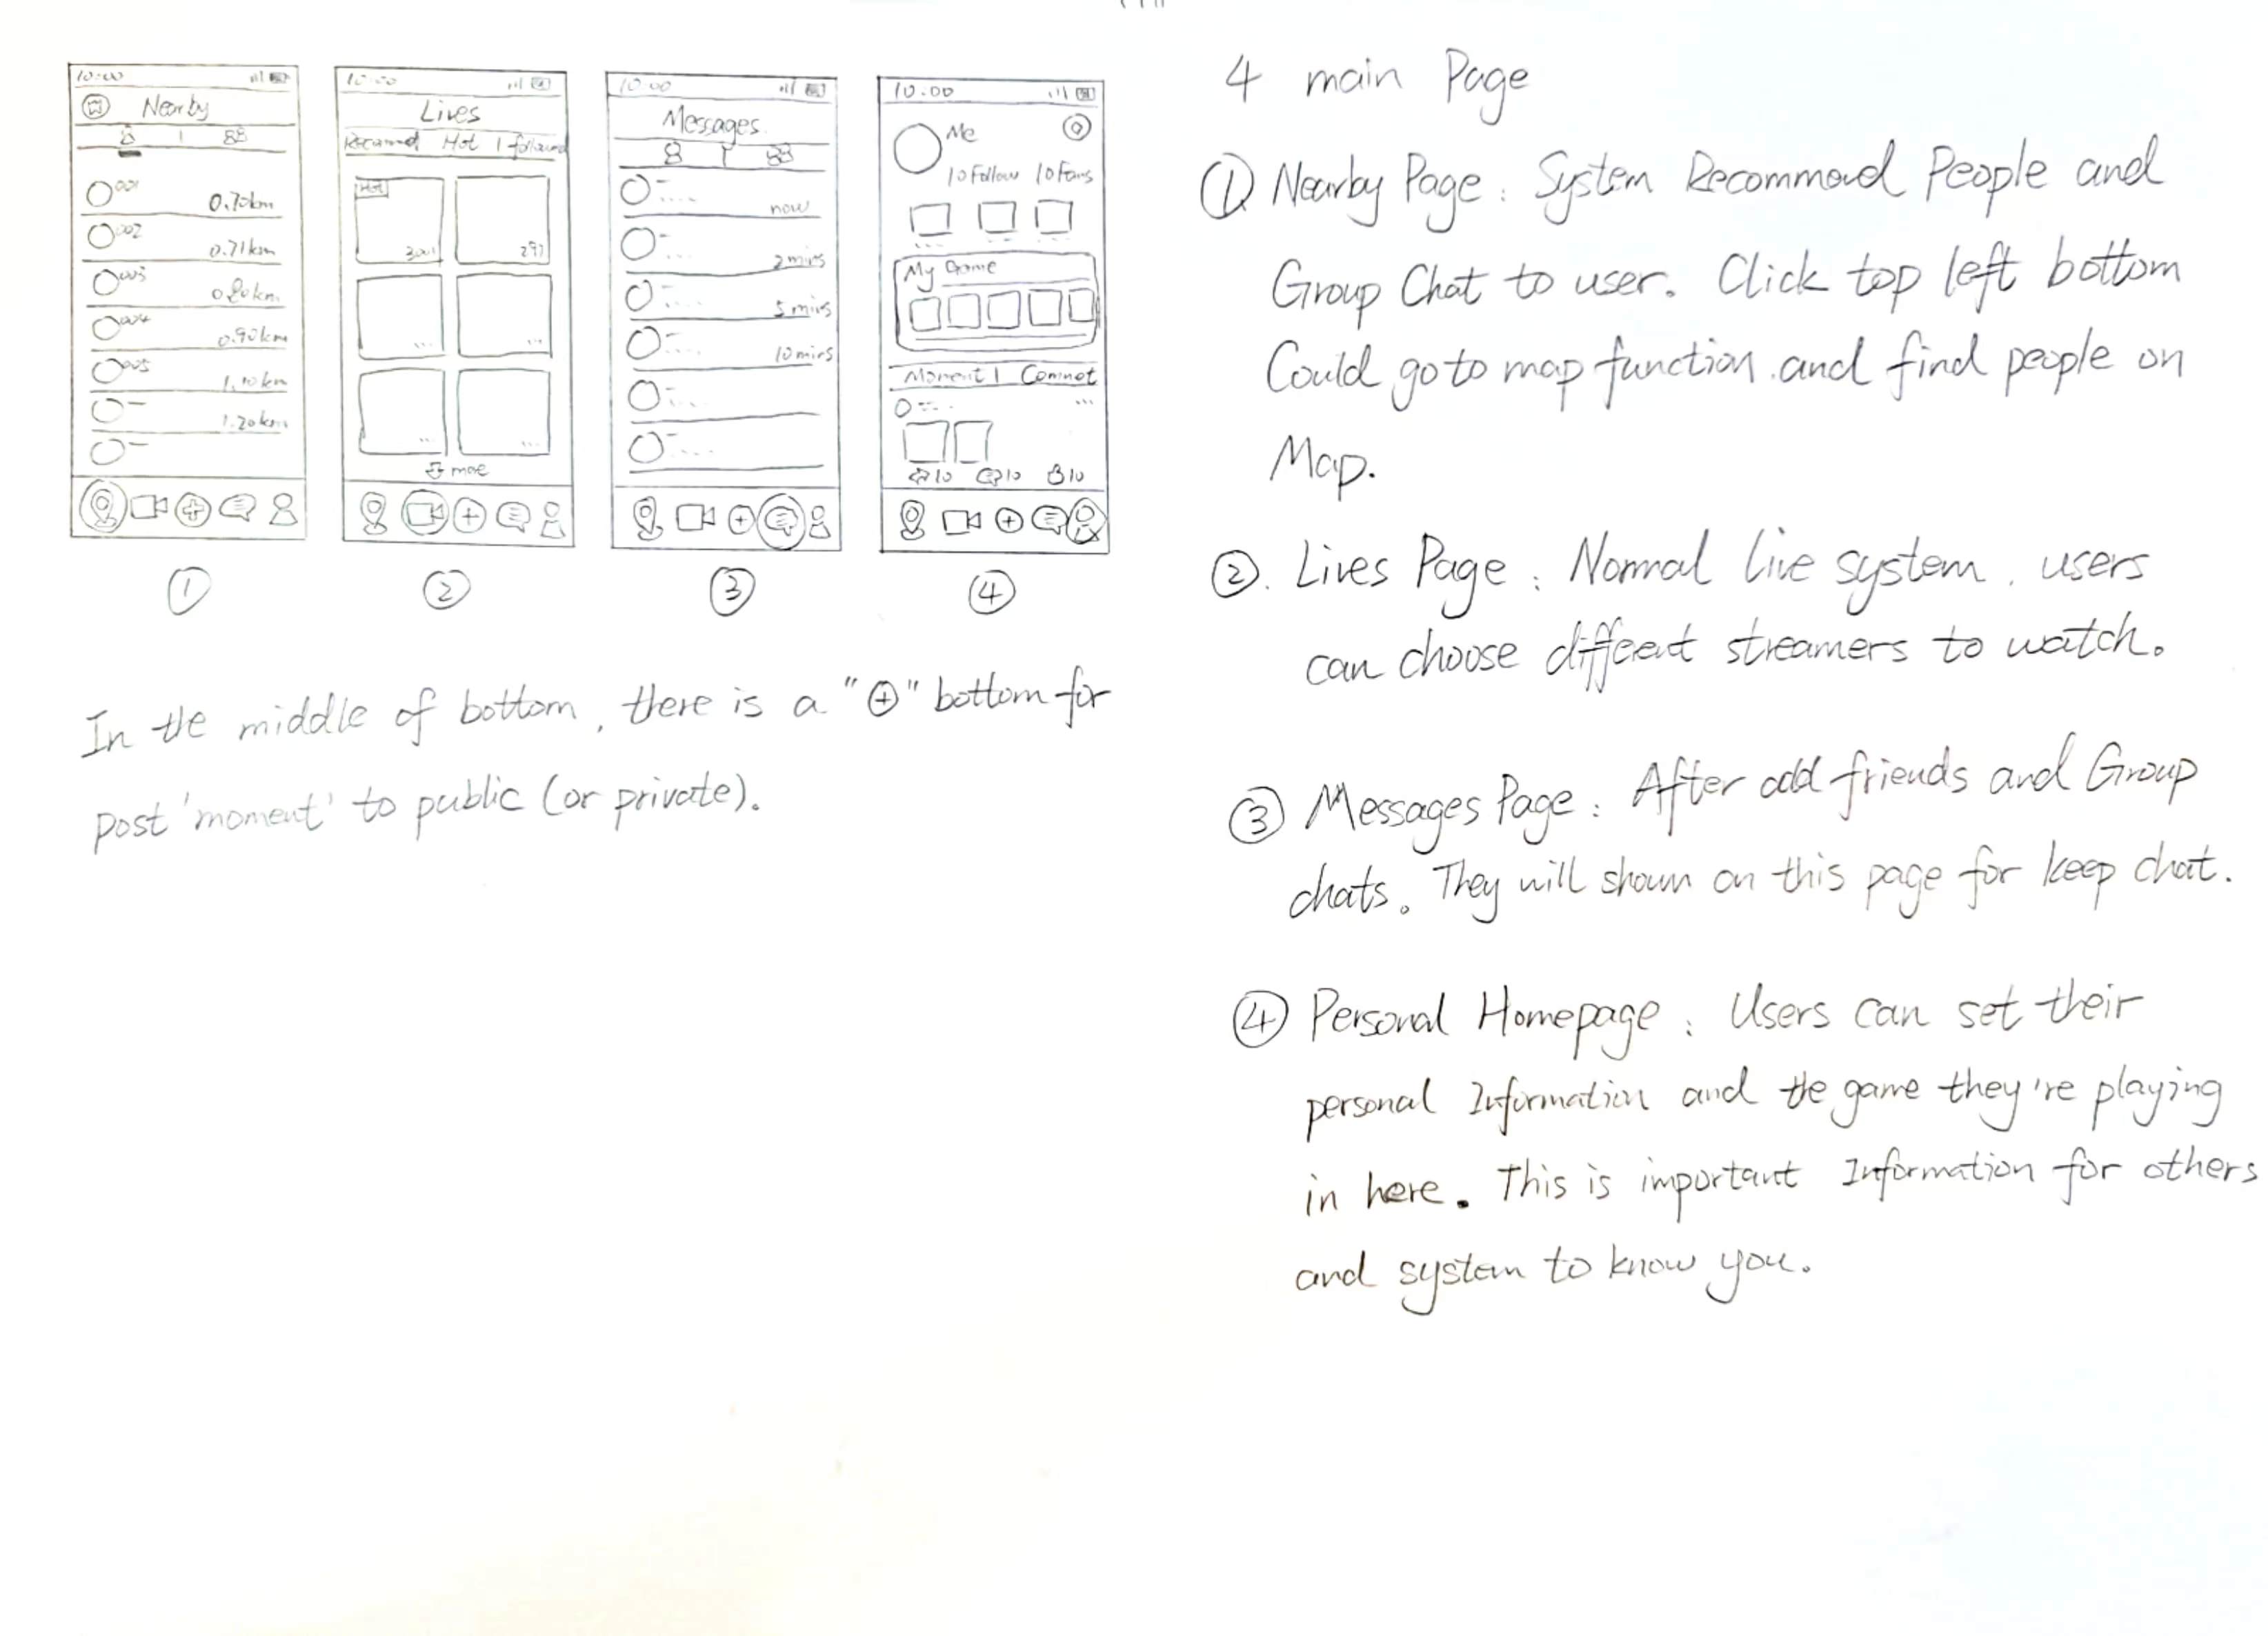 10:00
Nearby
001
0.70km
002
0.71km
003
0.80km
004
0.90km
005
1.10km
1.20km
①
10:00
Lives
Recommed Hot | followed
Hot
3001
297
more
②
10:00
Messages
now
2 mins
5 mins
10 mins
③
10:00
Me
10 Follow 10 Fans
My Game
Moment | Commet
10 10 10
④
In the middle of bottom, there is a "⊕" bottom for
post 'moment' to public (or private).
4 main Page
① Nearby Page: System Recommend People and
Group Chat to user. Click top left bottom
Could go to map function and find people on
Map.
②. Lives Page: Normal live system, users
can choose diffeent streamers to watch.
③ Messages Page: After add friends and Group
chats. They will shown on this page for keep chat.
④ Personal Homepage: Users can set their
personal Information and the game they're playing
in here. This is important Information for others
and system to know you.